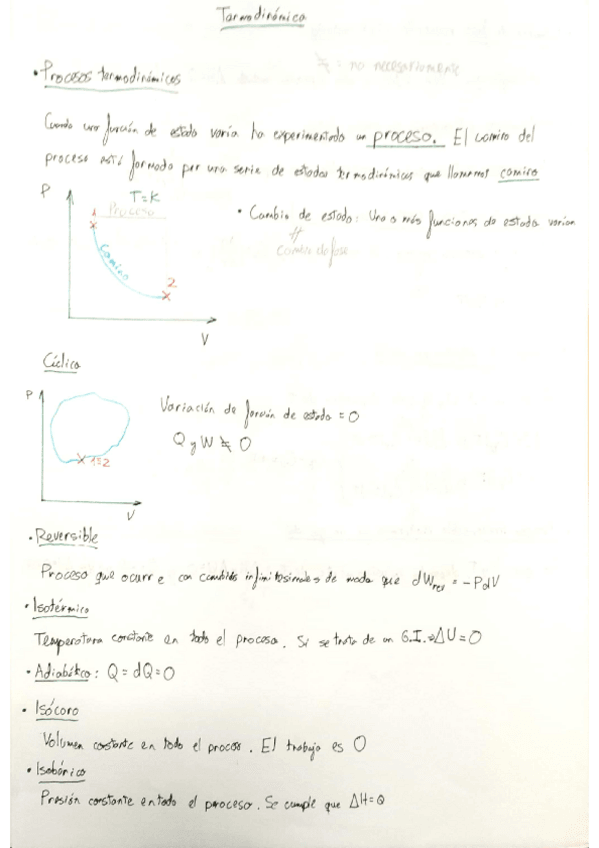 Termodinámica
≠ : no necesariamente
• Procesos termodinámicos
Cuando una función de estado varía ha experimentado un proceso. El camino del
proceso está formado por una serie de estados termodinámicos que llamamos camino
P
T=K
Proceso
1
Camino
2
V
• Cambio de estado: Una o más funciones de estado varían
Cambio de fase
Cíclico
P
1=2
V
Variación de función de estado = 0
Q y W ≠ 0
• Reversible
Proceso que ocurre con cambios infinitesimales de modo que dWrev = -PdV
• Isotérmico
Temperatura constante en todo el proceso. Si se trata de un G.I. ⇒ ΔU=0
• Adiabático: Q = dQ = 0
• Isócoro
Volumen constante en todo el proceso. El trabajo es 0
• Isobárico
Presión constante en todo el proceso. Se cumple que ΔH=Q